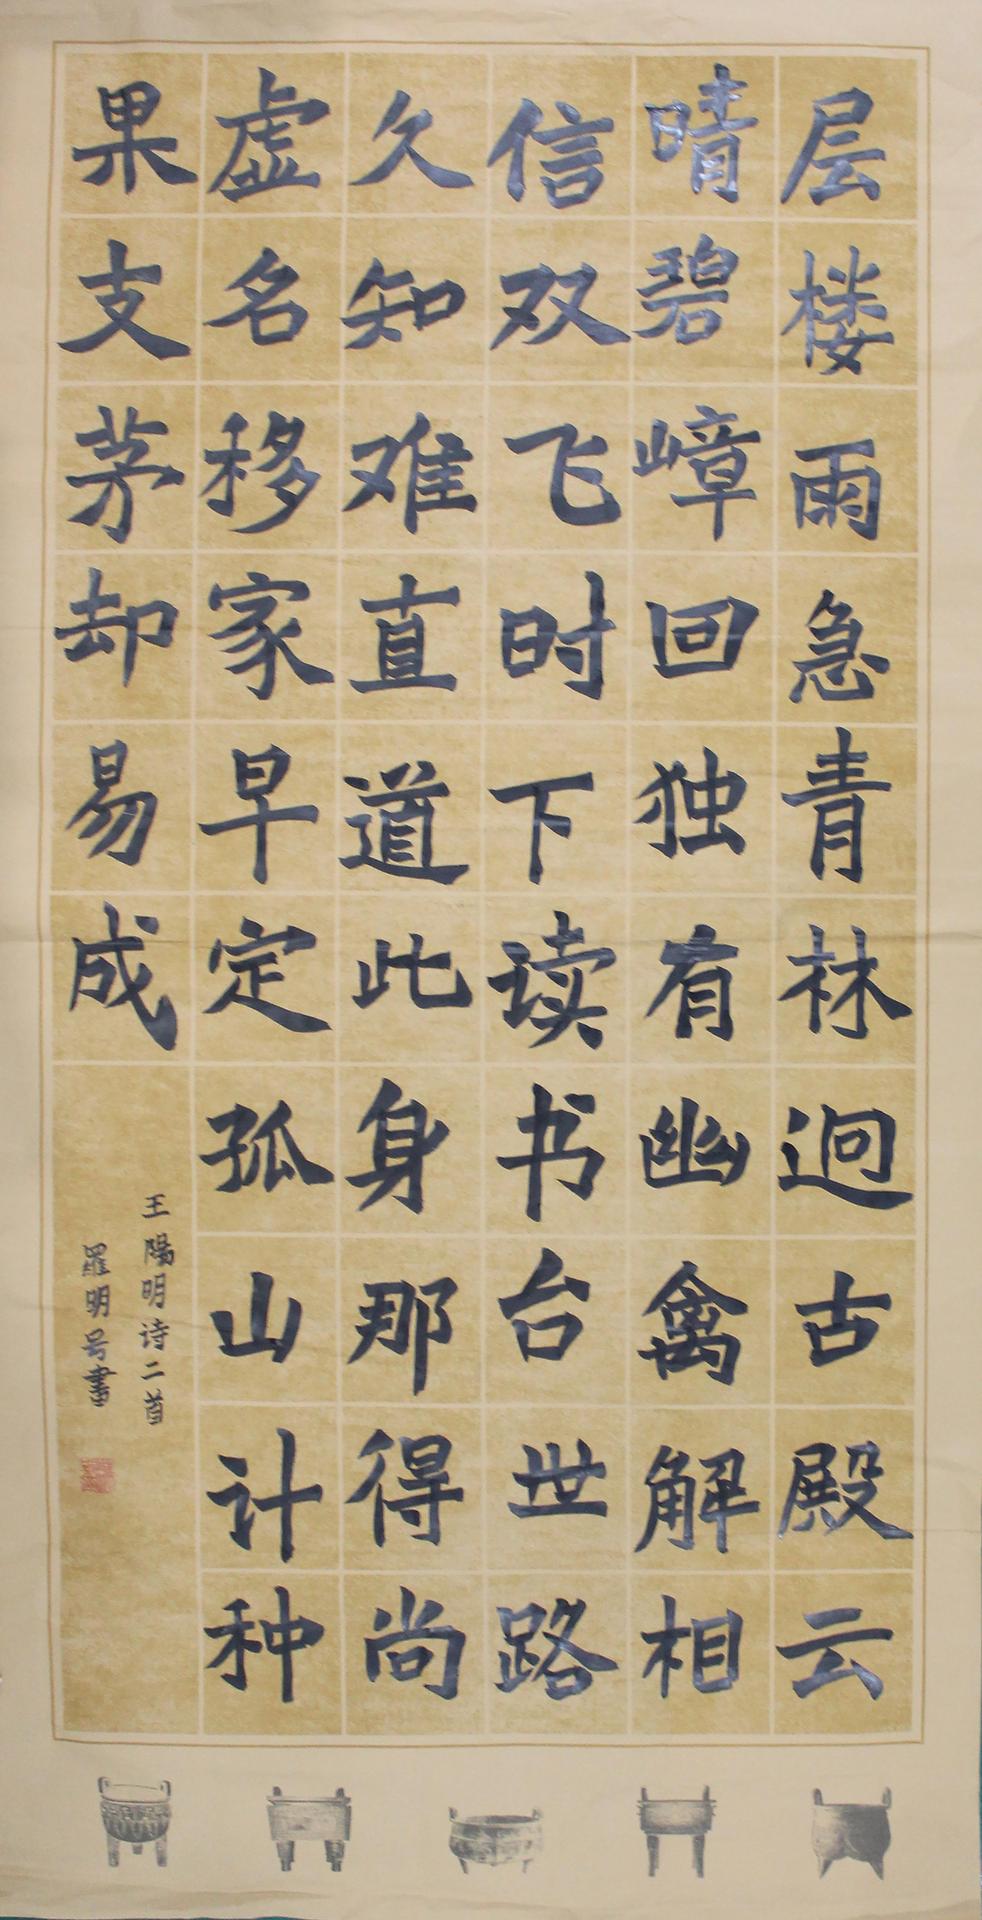 层楼雨急青林迥古殿云
晴碧嶂回独有幽禽解相
信双飞时下读书台世路
久知难直道此身那得尚
虚名移家早定孤山计种
果支茅却易成
王陽明诗二首
羅明号書